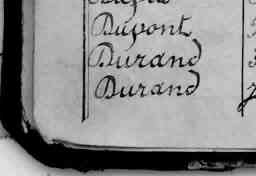 Dupont
Durand
Durand